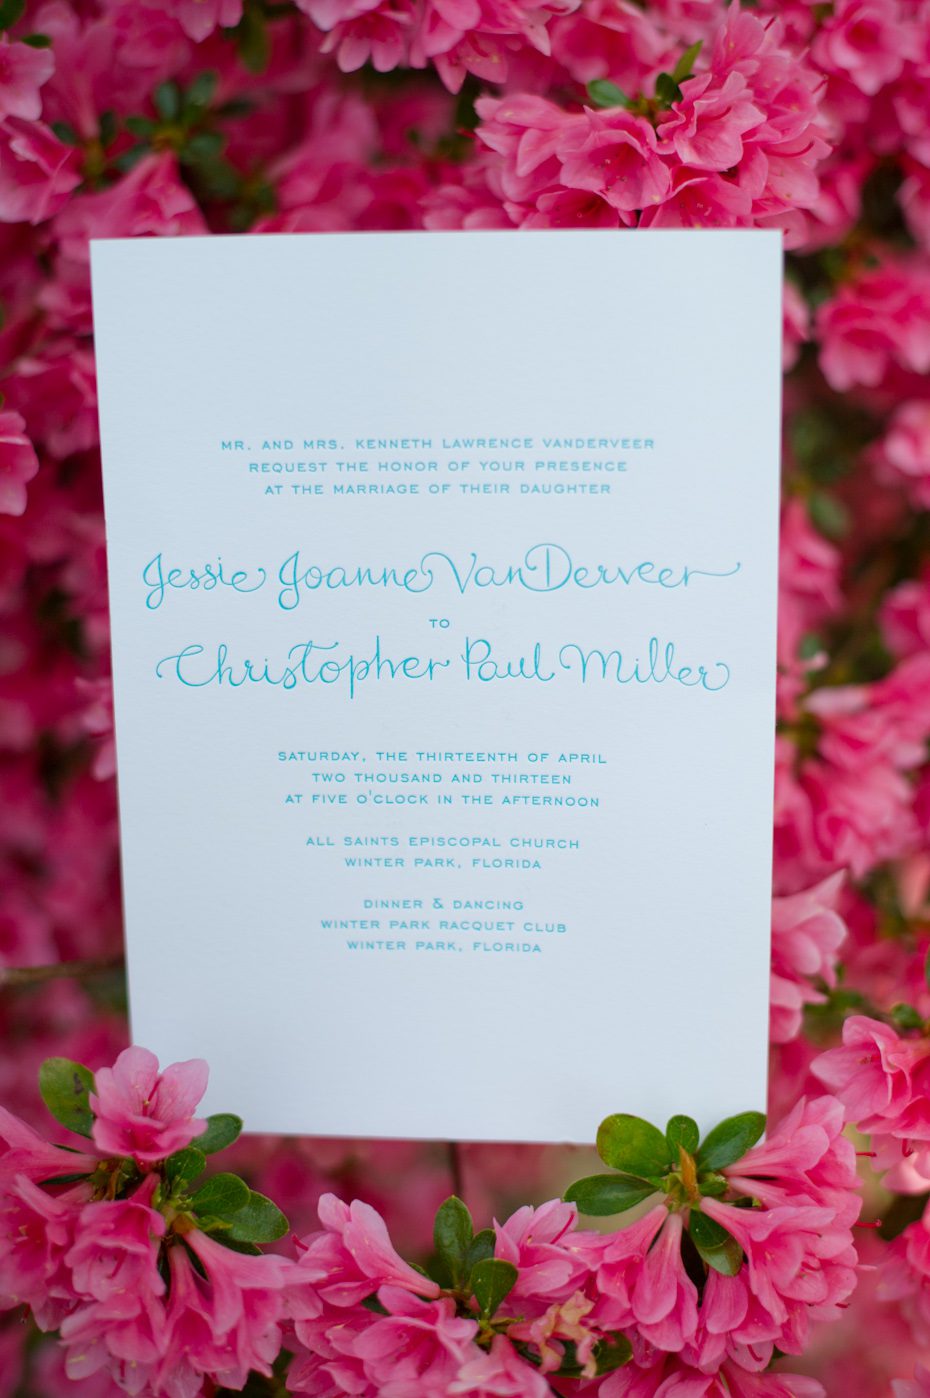 MR. AND MRS. KENNETH LAWRENCE VANDERVEER
REQUEST THE HONOR OF YOUR PRESENCE
AT THE MARRIAGE OF THEIR DAUGHTER
Jessie Joanne VanDerveer
TO
Christopher Paul Miller
SATURDAY, THE THIRTEENTH OF APRIL
TWO THOUSAND AND THIRTEEN
AT FIVE O'CLOCK IN THE AFTERNOON
ALL SAINTS EPISCOPAL CHURCH
WINTER PARK, FLORIDA
DINNER & DANCING
WINTER PARK RACQUET CLUB
WINTER PARK, FLORIDA